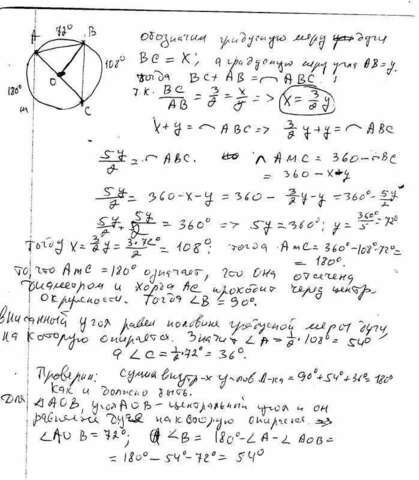 72° B
A
108°
O
180°
m
C
обозначим градусную меру дуги
BC = X; а градусную меру угла AB=y.
тогда BC + AB = ⌒ ABC;
т.к. BC/AB = 3/2 = x/y => X = 3/2 y
X+y = ⌒ ABC => 3/2 y + y = ⌒ ABC
5y/2 = ⌒ ABC. ⌒ AMC = 360 - BC
= 360 - X - y
5y/2 = 360 - x - y = 360 - 3/2 y - y = 360° - 5y/2
5y/2 + 5y/2 = 360° => 5y = 360°; y = 360°/5 = 72°
Тогда X = 3/2 y = 3·72°/2 = 108°. тогда AmC = 360° - 108° - 72° =
= 180°.
то, что AmC = 180° означает, что она отсечена
диаметром и хорда AC проходит через центр
окружности. Тогда ∠B = 90°.
вписанный угол равен половине градусной меры дуги,
на которую опирается. Значит ∠A = 1/2 · 108° = 54°
а ∠C = 1/2 · 72° = 36°.
Проверим: сумма внутр-х углов Δ-ка = 90° + 54° + 36° = 180°
как и должно быть.
Для ΔAOB, угол AOB - центральный угол и он
равен дуге на которую опирается =>
∠AOB = 72°; ∠B = 180° - ∠A - ∠AOB =
= 180° - 54° - 72° = 54°